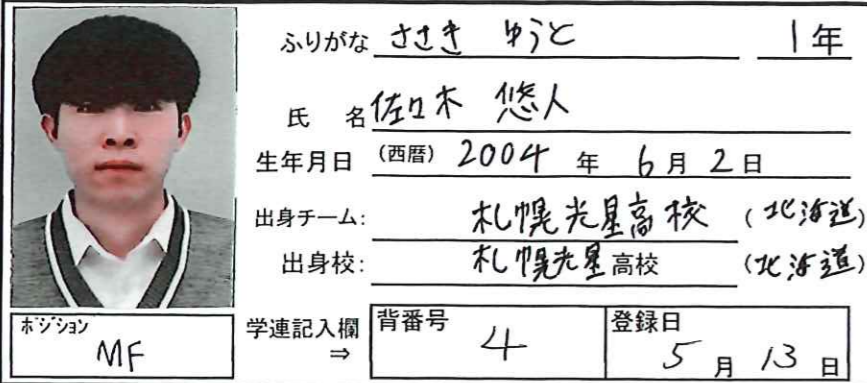 ふりがな ささき ゆうと 1年
氏 名 佐々木 悠人
生年月日 (西暦) 2004 年 6月 2日
出身チーム: 札幌光星高校 (北海道)
出身校: 札幌光星高校 (北海道)
ポジション MF
学連記入欄 ⇒
背番号 4
登録日 5月 13日